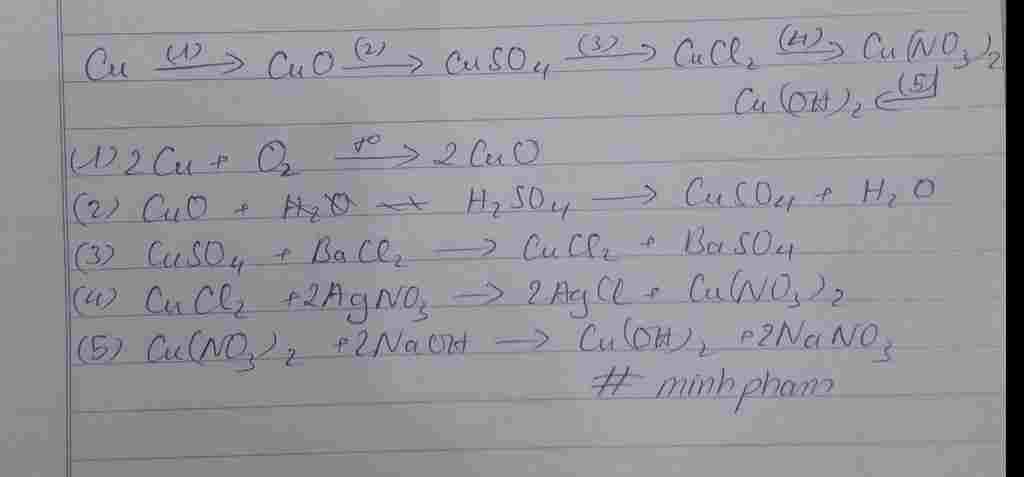 Cu (1)→ CuO (2)→ CuSO₄ (3)→ CuCl₂ (4)→ Cu(NO₃)₂
Cu(OH)₂ ←(5)
(1) 2Cu + O₂ t°→ 2CuO
(2) CuO + H₂O → H₂SO₄ → CuSO₄ + H₂O
(3) CuSO₄ + BaCl₂ → CuCl₂ + BaSO₄
(4) CuCl₂ +2AgNO₃ → 2AgCl + Cu(NO₃)₂
(5) Cu(NO₃)₂ +2NaOH → Cu(OH)₂ +2NaNO₃
# minhpham